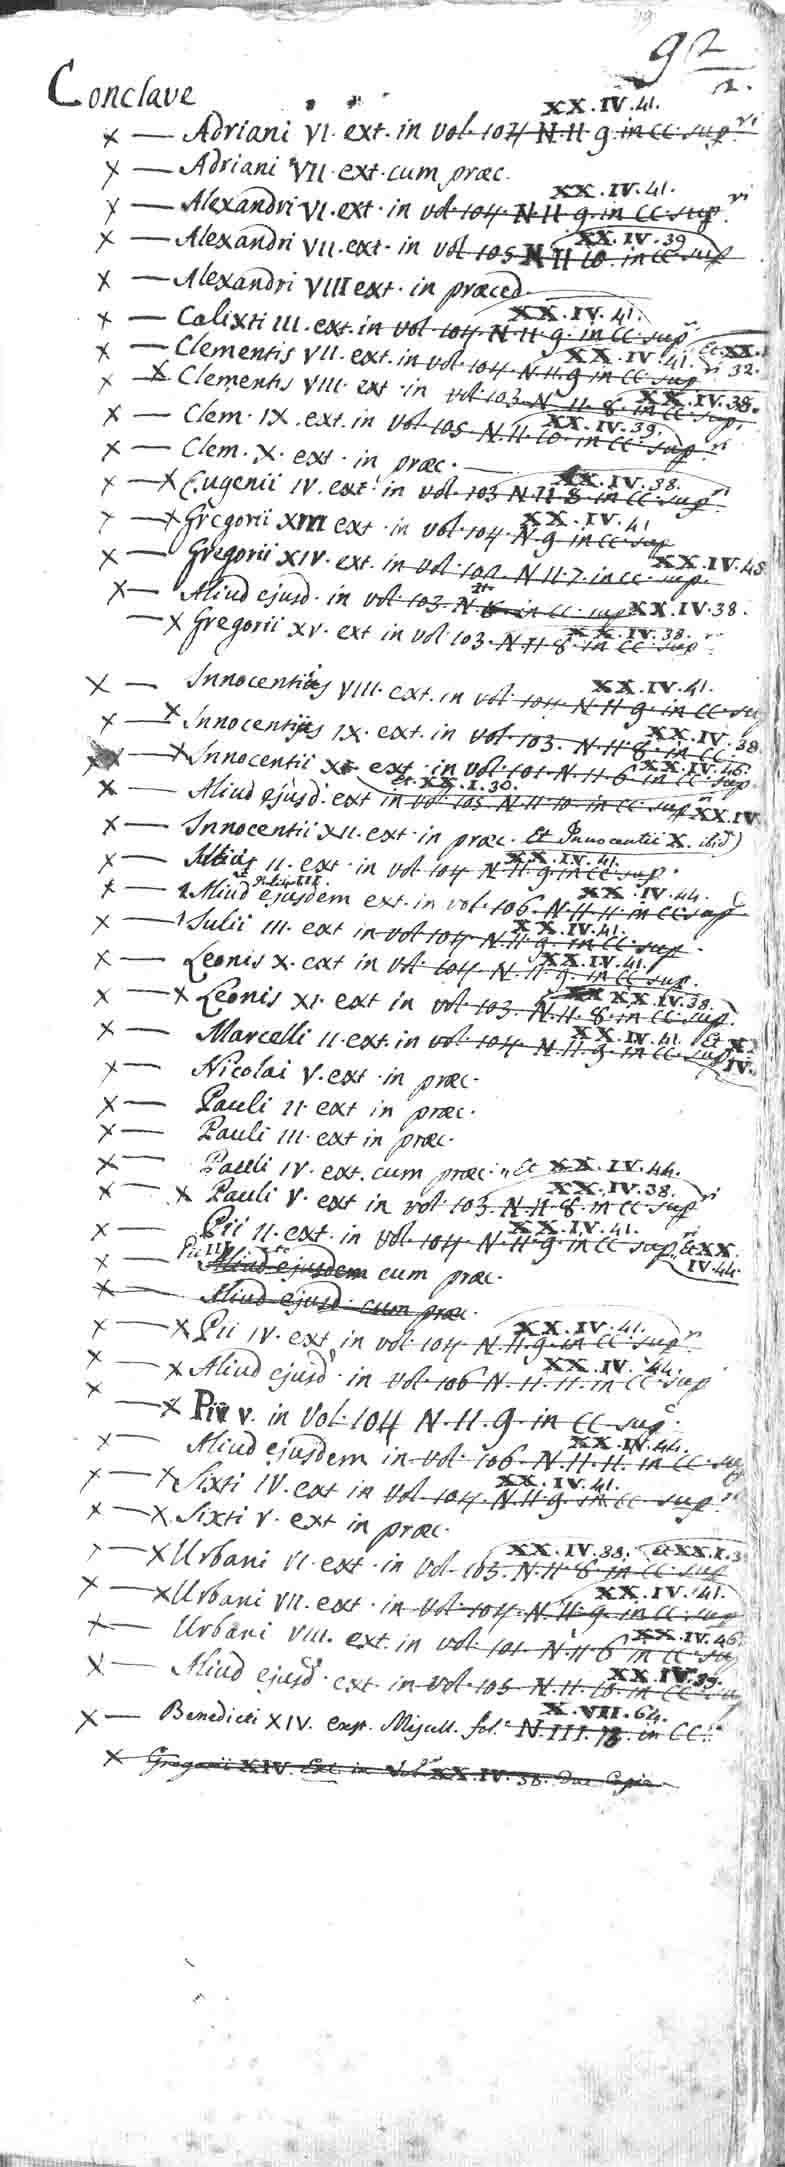 92
2.
Conclave
XX.IV.41.
× — Adriani VI. ext. in vol. 104 N. II 9. in CC. sup.ri
× — Adriani VII. ext. cum præc.
XX.IV.41.
× — Alexandri VI. ext. in vol. 104. N. II 9. in CC. sup.ri
XX.IV.39
× — Alexandri VII. ext. in vol 105 N II 10. in CC. sup
× — Alexandri VIII ext. in præced.
XX.IV.41.
× — Calixti III. ext. in vol. 104. N. II. 9. in CC. sup.r
XX.IV.41. Et XX.
× — Clementis VII. ext. in vol. 104. N. II. 9 in CC. sup ri 32.
XX.IV.38.
× — × Clementis VIII. ext. in vol. 103. N. II. 8. in CC. sup.
XX.IV.39.
× — Clem. IX. ext. in vol. 105. N. II. 10. in CC. sup.ri
× — Clem. X. ext. in præc. —
XX.IV.38.
× — × Eugenii IV. ext. in vol. 103 N. II 8. in CC. sup.ri
XX.IV.41
× — × Gregorii XIII ext. in vol. 104. N. 9. in CC. sup
XX.IV.48
× — Gregorii XIV. ext. in vol. 102. N. II. 7. in CC. sup.
× — Aliud ejusd. in vol. 103. N. 8. in CC. sup XX.IV.38.
XX.IV.38.
— × Gregorii XV. ext in vol. 103. N. II. 8. in CC. sup
XX.IV.41.
× — Innocentii VIII. ext. in vol. 104. N. II. 9. in CC. su
XX.IV.38
× — × Innocentii IX. ext. in vol. 103. N. II. 8. in CC.
XX.IV.46.
× — × Innocentii X ext. in vol. 101. N. II. 6 in CC. sup.
et XX.I.30.
× — Aliud ejusd. ext in vol. 105. N. II. 10. in CC. sup XX.IV
× — Innocentii XII. ext. in præc. Et Innocentii X. ibid)
XX.IV.41.
× — Julii II. ext. in vol. 104 N. II. 9. in CC. sup.
XX.IV.44.
× — Aliud ejusdem ext. in vol. 106. N. II. 11. in CC. sup
XX.IV.41.
× — Julii III. ext in vol 104. N. II. 9. in CC. sup.
XX.IV.41.
× — Leonis X. ext in vol. 104. N. II. 9. in CC. sup.
XX.IV.38.
× — × Leonis XI. ext in vol. 103. N. II. 8. in CC. sup.
XX.IV.41. Et X
× — Marcelli II. ext. in vol. 104. N. II. 9. in CC. sup. IV.
× — Nicolai V. ext. in præc.
× — Pauli II. ext in præc.
× — Pauli III. ext in præc.
× — Pauli IV. ext. cum præc. Et XX.IV.44.
XX.IV.38.
× — × Pauli V. ext in vol. 103. N. II. 8. in CC. sup ri
XX.IV.41.
× — Pii II. ext. in vol. 104. N. II. 9. in CC. sup. Et XX.
IV.44.
Pii III.
× — Aliud ejusdem cum præc.
× — Aliud ejusd. cum præc.
XX.IV.41.
× — × Pii IV. ext in vol. 104. N. II. 9. in CC. sup.ri
XX.IV.44.
× — × Aliud ejusd. in vol. 106 N. II. 11. in CC. sup
× — × Pii V. in Vol. 104 N. II. 9. in CC. sup.
XX.IV.44.
× — Aliud ejusdem in vol. 106. N. II. 11. in CC. su
XX.IV.41.
× — × Sixti IV. ext in vol. 104. N. II. 9. in CC. sup.ri
× — × Sixti V. ext in præc.
XX.IV.38. et XX.I.3
× — × Urbani VI. ext. in vol. 103. N. II. 8 in CC. sup
XX.IV.41.
× — × Urbani VII. ext. in vol. 104. N. II. 9. in CC. sup
XX.IV.46.
× — Urbani VIII. ext. in vol. 101. N. II. 6 in CC. su
XX.IV.39.
× — Aliud ejusd. ext. in vol. 105 N. II. 10. in CC. su
X.VII.64.
× — Benedicti XIV. Miscell. fol. N. III. in CC.
× Gregorii XIV. Ext. in Vol. XX.IV.38. Duæ Copiæ